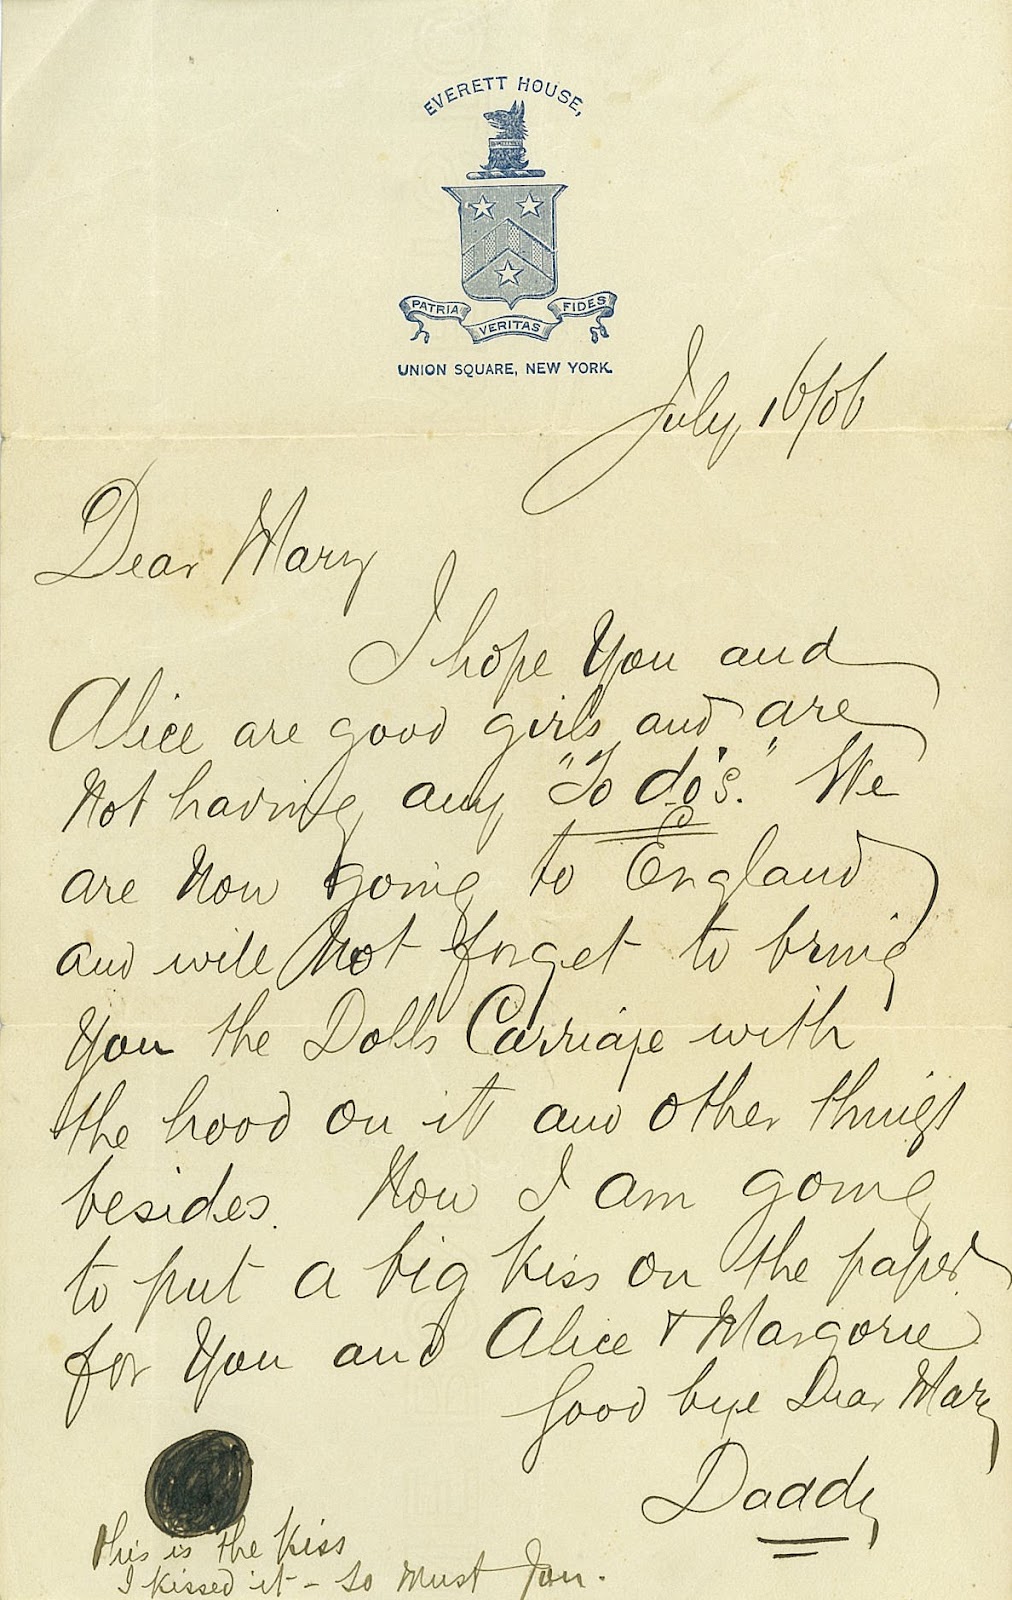 EVERETT HOUSE,
PATRIA VERITAS FIDES
UNION SQUARE, NEW YORK.
July 16/06
Dear Mary
I hope You and
Alice are good girls and are
Not having any "To do's." We
are Now going to England
and will Not forget to bring
You the Dolls Carriage with
the hood on it and other things
besides. Now I am going
to put a big kiss on the paper
for You and Alice + Margorie
Good bye Dear Mary
Daddy
this is the kiss
I kissed it - So Must You.